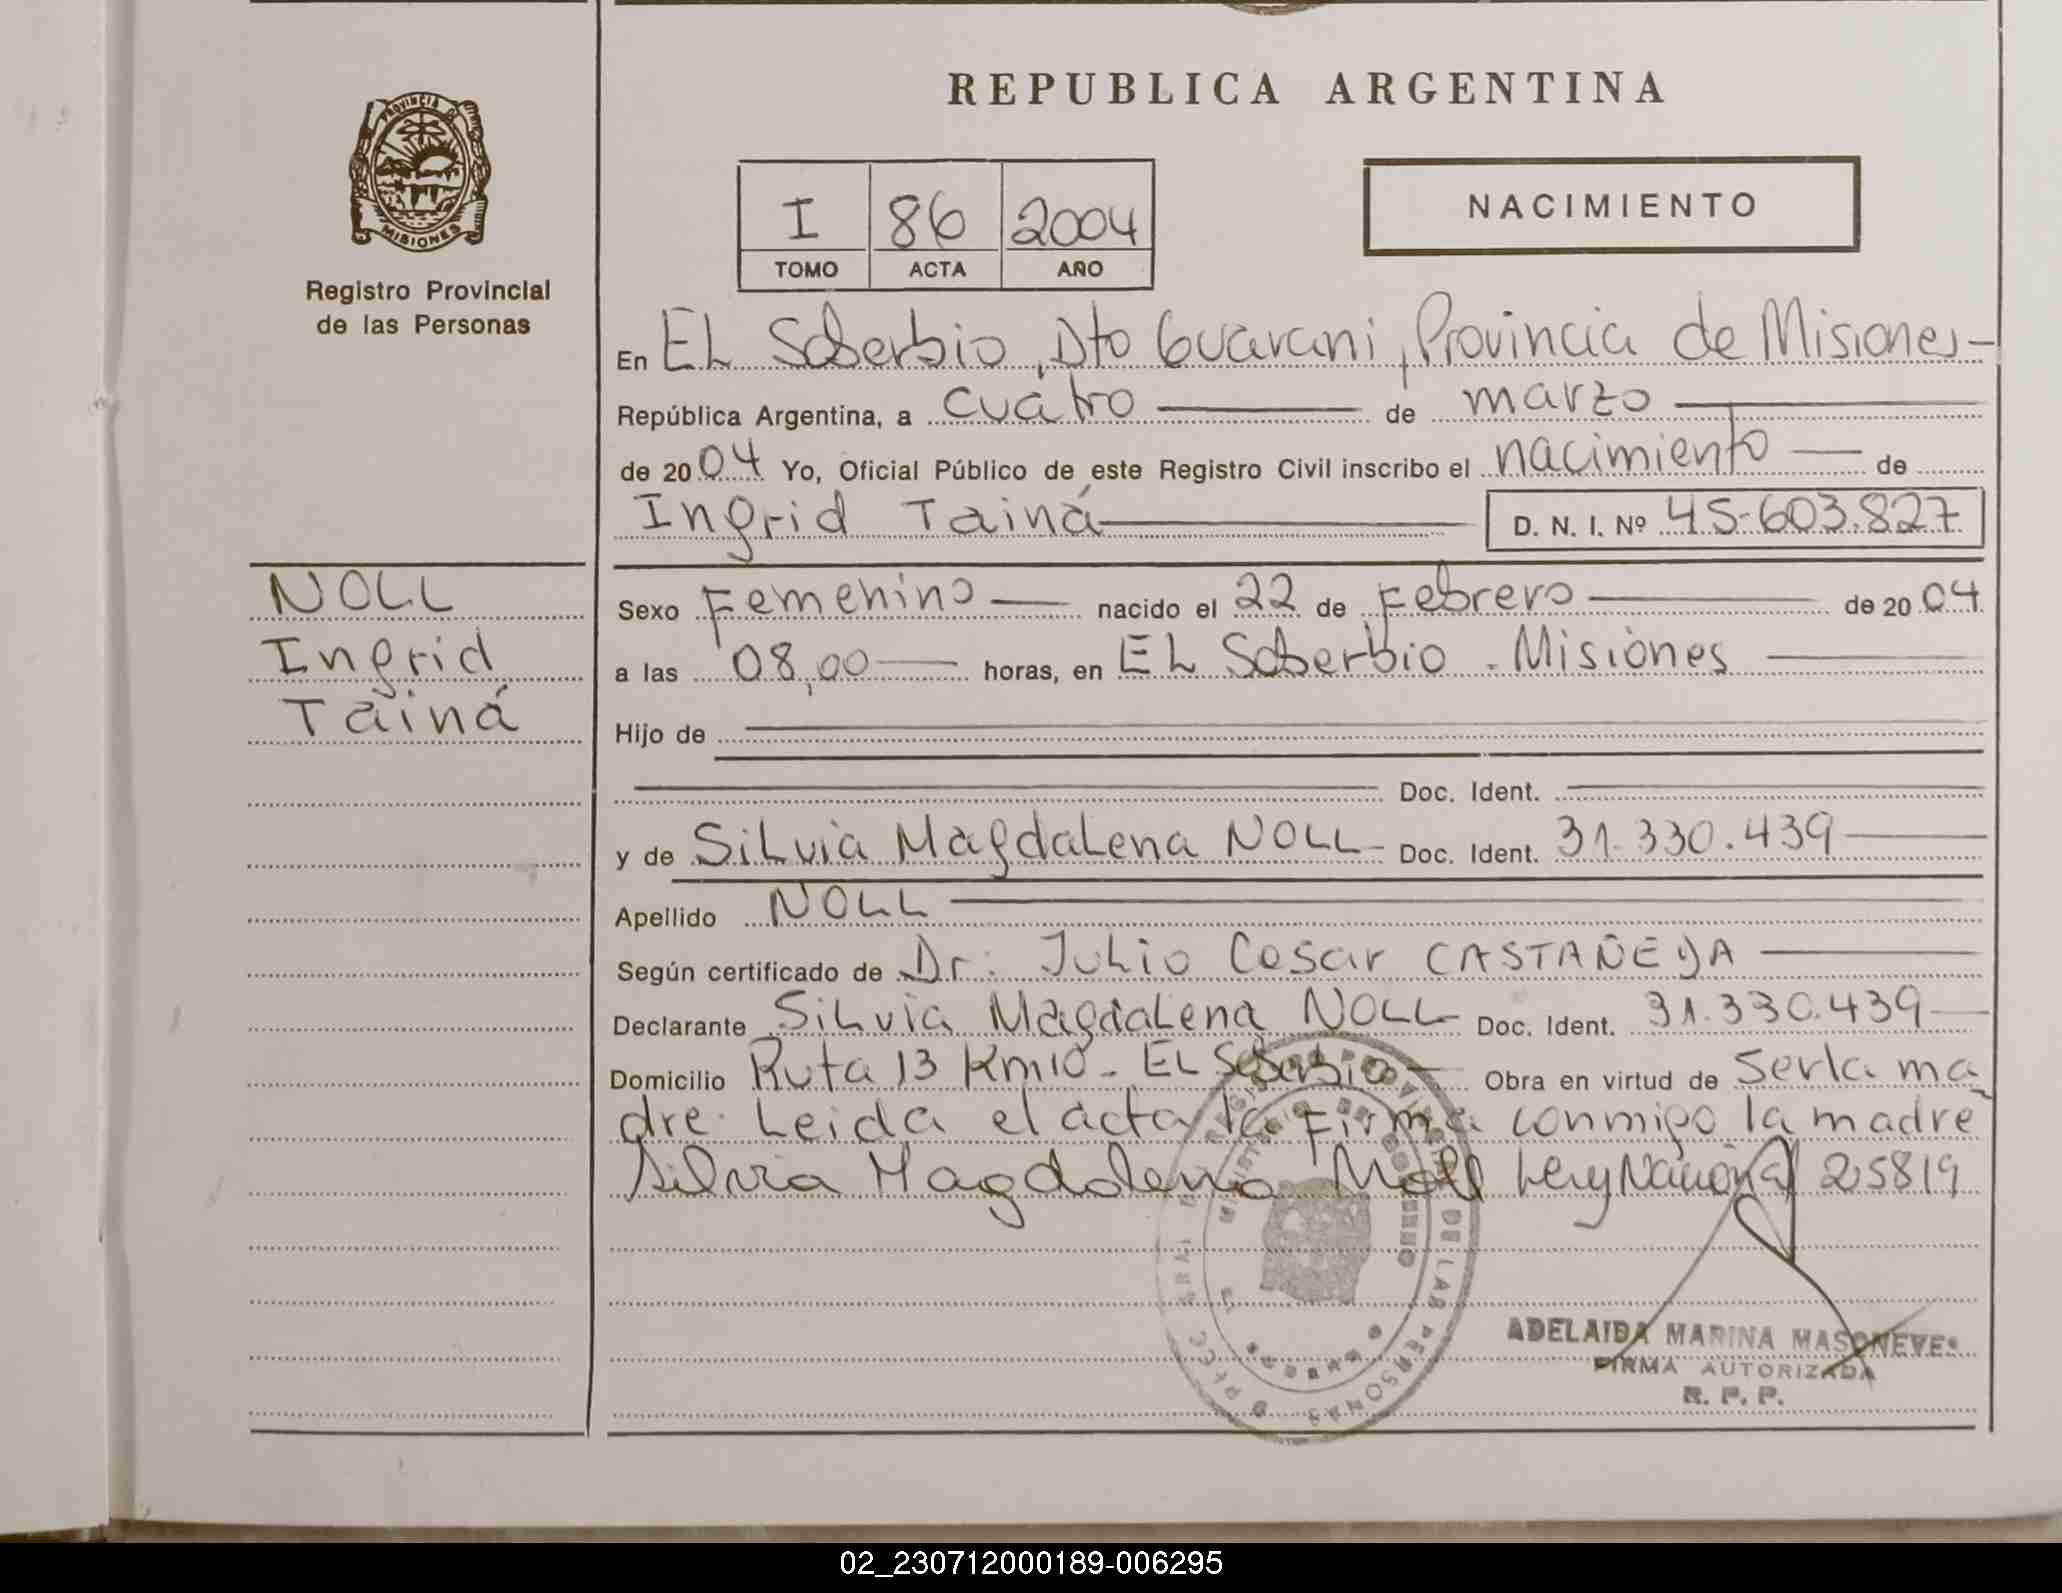 REPUBLICA ARGENTINA
PROVINCIA DE
MISIONES
Registro Provincial
de las Personas
I 86 2004
TOMO ACTA AÑO
NACIMIENTO
En EL Soberbio, Dto Guarani, Provincia de Misiones
República Argentina, a cuatro de marzo
de 2004 Yo, Oficial Público de este Registro Civil inscribo el nacimiento de
Ingrid Tainá D. N. I. Nº 45.603.827
NOLL
Ingrid
Tainá
Sexo Femenino nacido el 22 de Febrero de 2004
a las 08,00 horas, en EL Soberbio - Misiones
Hijo de
Doc. Ident.
y de Silvia Magdalena NOLL Doc. Ident. 31.330.439
Apellido NOLL
Según certificado de Dr. Julio Cesar CASTAÑEDA
Declarante Silvia Magdalena NOLL Doc. Ident. 31.330.439
Domicilio Ruta 13 Km10 - EL Soberbio Obra en virtud de Serla ma
dre. Leida el acta la Firma conmigo la madre
Silvia Magdalena Noll Ley Nacional 25819
ADELAIDA MARINA
FIRMA AUTORIZADA
R. P. P.
02_230712000189-006295